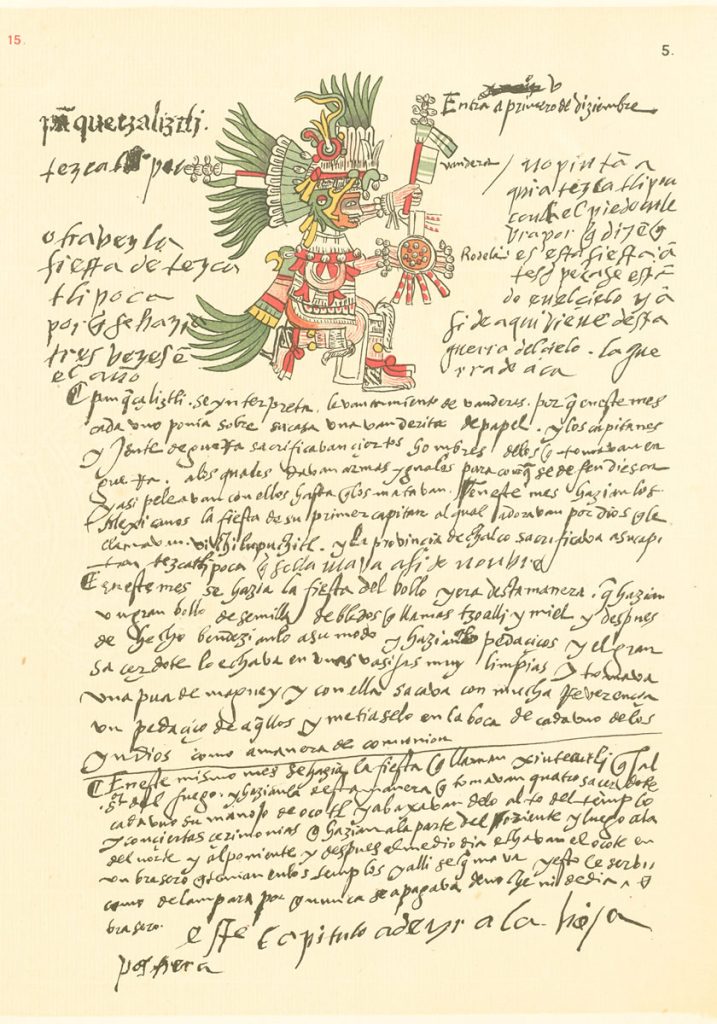 15.
5.
panquetzaliztli.
tezcatlipoca
Entra a primero de diziembre
vandera
Rodela
otra vez la
fiesta de tezca
tlipoca
por q̄ se hazia
tres vezes ē
el año
no pintā a
qui a tezcatlipoca
con el pie
por q̄ dizē q̄
es esta fiesta
tespecase està
do en el cielo y ā
si de aqui viene desta
guerra del cielo. la gue
rra de aca
panq̄caliztli. se ynterpreta. levantamiento de vanderas. por q̄ en este mes
cada uno ponia sobre su casa una vanderita de papel. y los capitanes
y Jente de guerra sacrificavan çiertos hombres delos q̄ tomavan en
guerra. alos quales davan armas yguales para con q̄ se defendiesen
y asi peleavan con ellos hasta q̄ los matavan. En este mes hazian los
Mexicanos la fiesta de su primer capitan al qual adoravan por dios q̄ le
llamavan vichilupuchitl. y la provincia de chalco sacrificava a su capi
tan tezcatlipoca q̄ se llamava asi de nonbre
En este mes se hazia la fiesta del bollo y era desta manera. q̄ hazian
un gran bollo de semilla de bledos q̄ llaman tzoalli y miel y despues
de hecho bendezianlo a su modo y hazianlo pedaçicos y el gran
sacerdote lo echava en unas vasijas muy limpias y tomava
una pua de maguey y con ella sacava con mucha Reverençia
un pedaçico de aq̄llos y metiaselo en la boca de cada uno de los
yndios como a manera de comunion
En este mismo mes se hazia la fiesta q̄ llaman xiutecutli q̄ al
dios del fuego. y hazianla desta manera q̄ tomavan quatro sacerdotes
cada uno su manojo de ocotl y abaxavan delo alto del templo
y con ciertas cerimonias q̄ hazian ala parte del oriente y luego ala
del norte y al poniente y despues al medio dia echavan el ocote en
un brasero q̄ tenian en los templos y alli se q̄mava y esto le serbi
como de lampara por q̄ nunca se apagava de noche ni de dia
brasero.
este Capitulo a de yr a la hoja
postrera